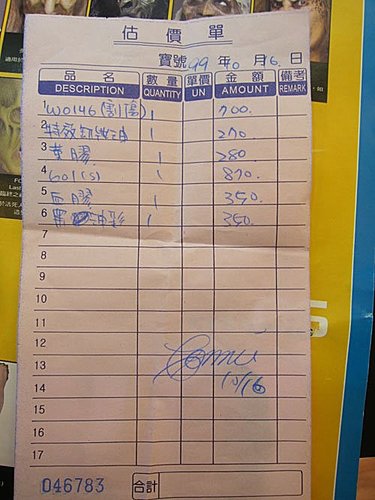 估價單
寶號 99 年 10 月 6 日
品名 數量 單價 金額 備考
DESCRIPTION QUANTITY UN AMOUNT REMARK
1 W0146 (割傷) 1 700.
2 特效 1 270
3 黃膠 1 280
4 601(s) 1 870.
5 血膠 1 350.
6 黑 油彩 1 350.
7
8
9
10
11
12
13
14 10/16
15
16
17
046783 合計